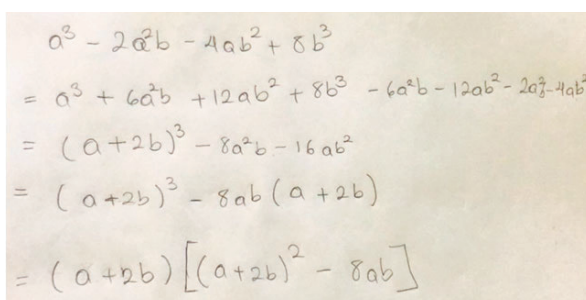 a³ - 2a²b - 4ab² + 8b³
= a³ + 6a²b + 12ab² + 8b³ - 6a²b - 12ab² - 2a²b - 4ab²
= (a+2b)³ - 8a²b - 16ab²
= (a+2b)³ - 8ab (a + 2b)
= (a+2b) [(a+2b)² - 8ab]